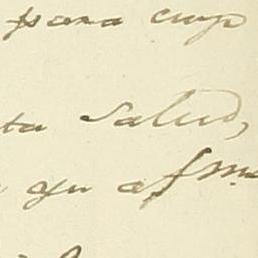 para cuyo
ta Salud,
su afmo